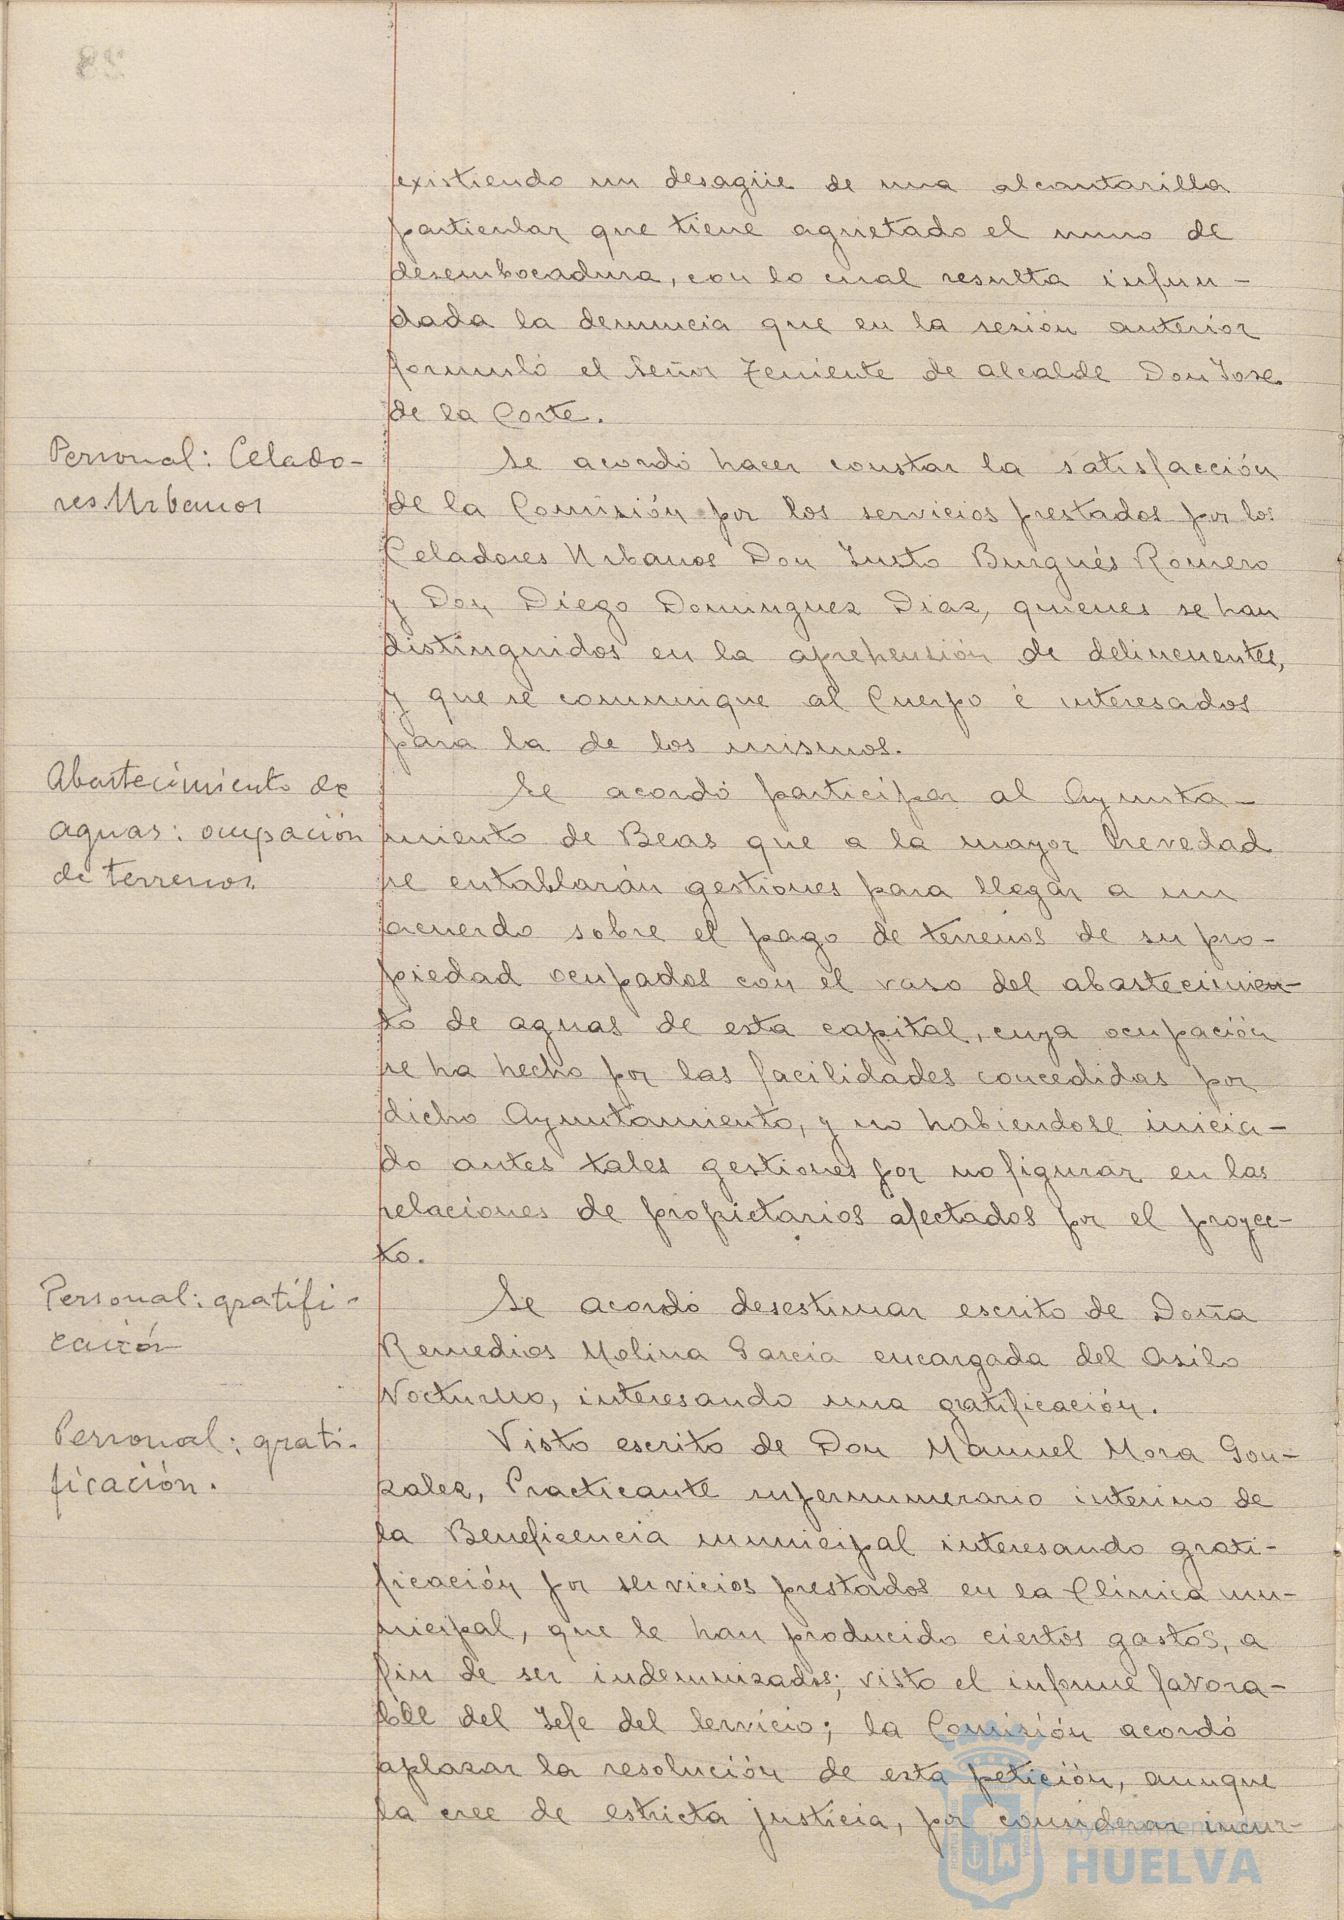 existiendo un desagüe de una alcantarilla
particular que tiene agrietado el muro de
desembocadura, con lo cual resulta infun-
dada la denuncia que en la sesión anterior
formuló el Señor Teniente de alcalde Don José
de la Corte.
Personal: Celado-
res Urbanos
Se acordó hacer constar la satisfacción
de la Comisión por los servicios prestados por los
Celadores Urbanos Don Justo Burgués Romero
y Don Diego Dominguez Diaz, quienes se han
distinguidos en la aprehensión de delincuentes,
y que se comunique al Cuerpo é interesados
para la de los mismos.
Abastecimiento de
aguas: ocupación
de terrenos.
Se acordó participar al Ayunta-
miento de Beas que a la mayor brevedad
se entablarán gestiones para llegar a un
acuerdo sobre el pago de terrenos de su pro-
piedad ocupados con el vaso del abastecimien-
to de aguas de esta capital, cuya ocupación
se ha hecho por las facilidades concedidas por
dicho Ayuntamiento, y no habiendose inicia-
do antes tales gestiones por no figurar en las
relaciones de propietarios afectados por el proyec-
to.
Personal: gratifi-
cación
Se acordó desestimar escrito de Doña
Remedios Molina Garcia encargada del Asilo
Nocturno, interesando una gratificación.
Personal: grati-
ficación.
Visto escrito de Don Manuel Mora Gon-
zalez, Practicante supernumerario interino de
la Beneficencia municipal interesando grati-
ficación por servicios prestados en la Clínica mu-
nicipal, que le han producido ciertos gastos, a
fin de ser indemnizados; visto el informe favora-
ble del Jefe del Servicio; la Comisión acordó
aplazar la resolución de esta petición, aunque
la cree de estricta justicia, por considerar incur-
Ayuntamiento de
HUELVA